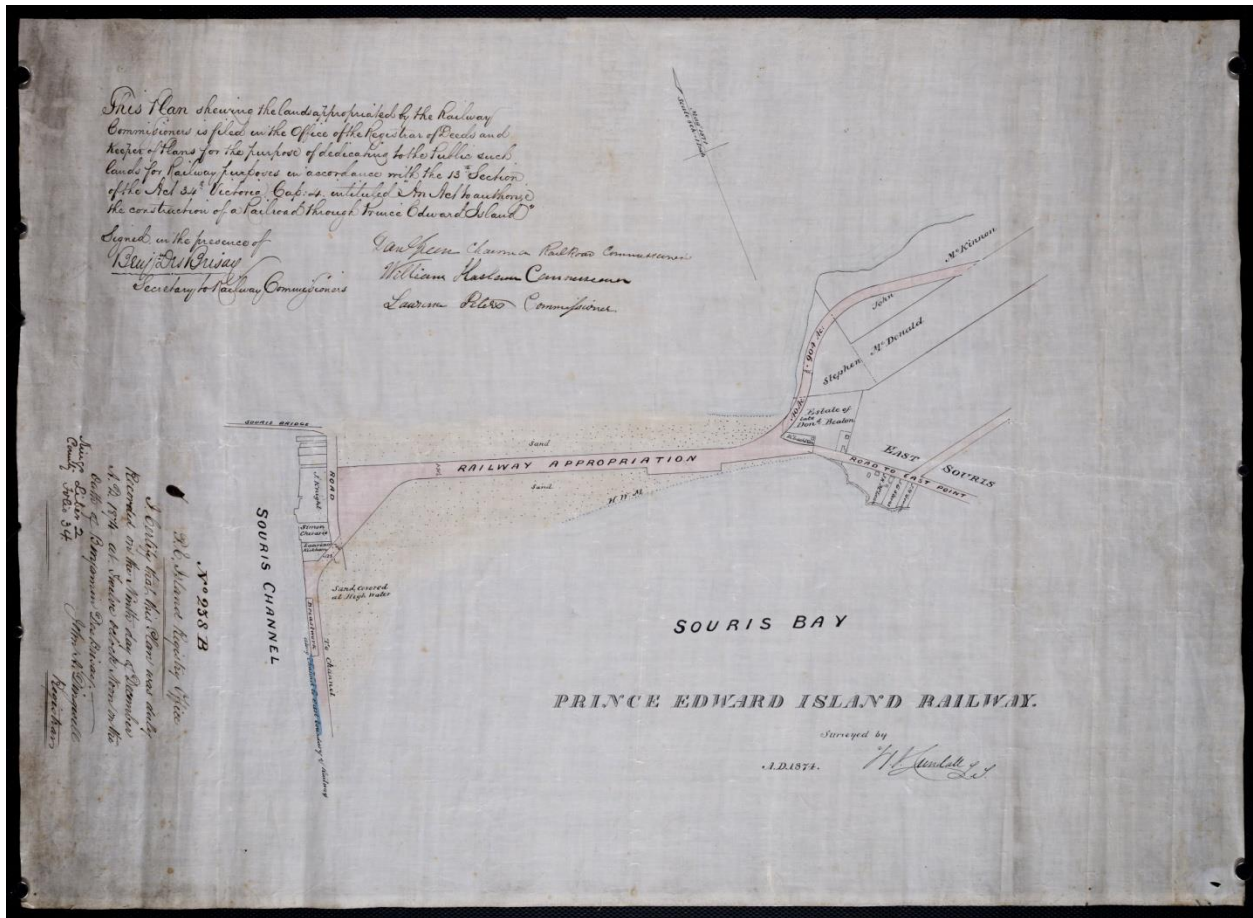 This Plan shewing the lands appropriated by the Railway
Commissioners is filed in the Office of the Registrar of Deeds and
Keeper of Plans for the purpose of dedicating to the Public such
lands for Railway purposes in accordance with the 13th Section
of the Act 34th Victoria, Cap: 4, intituled "An Act to authorize
the construction of a Railroad through Prince Edward Island"
Signed in the presence of
Benjn DesBrisay
Secretary to Railway Commissioners
Chairman RailRoad Commissioners
William Haslam Commissioner
Commissioner
John
McKinnon
Stephen
McDonald
Estate of
late
Dond. Beaton
EAST
SOURIS
ROAD TO EAST POINT
SOURIS BRIDGE
ROAD
J. Knight
Simon
Sand
RAILWAY APPROPRIATION
Sand
H.W.M.
Sand, Covered
at High Water
Breastwork
To Channel
SOURIS CHANNEL
SOURIS BAY
PRINCE EDWARD ISLAND RAILWAY.
Surveyed by
H. J. Cundall L.S.
A.D. 1874.
No 238 B
P. E. Island Registry Office
I Certify that this Plan was duly
Recorded on the Ninth day of December
A.D. 1874 at Twelve oclock Noon on the
Oath of Benjamin DesBrisay.
Registrar
Kings
County
Liber 2
Folio 34